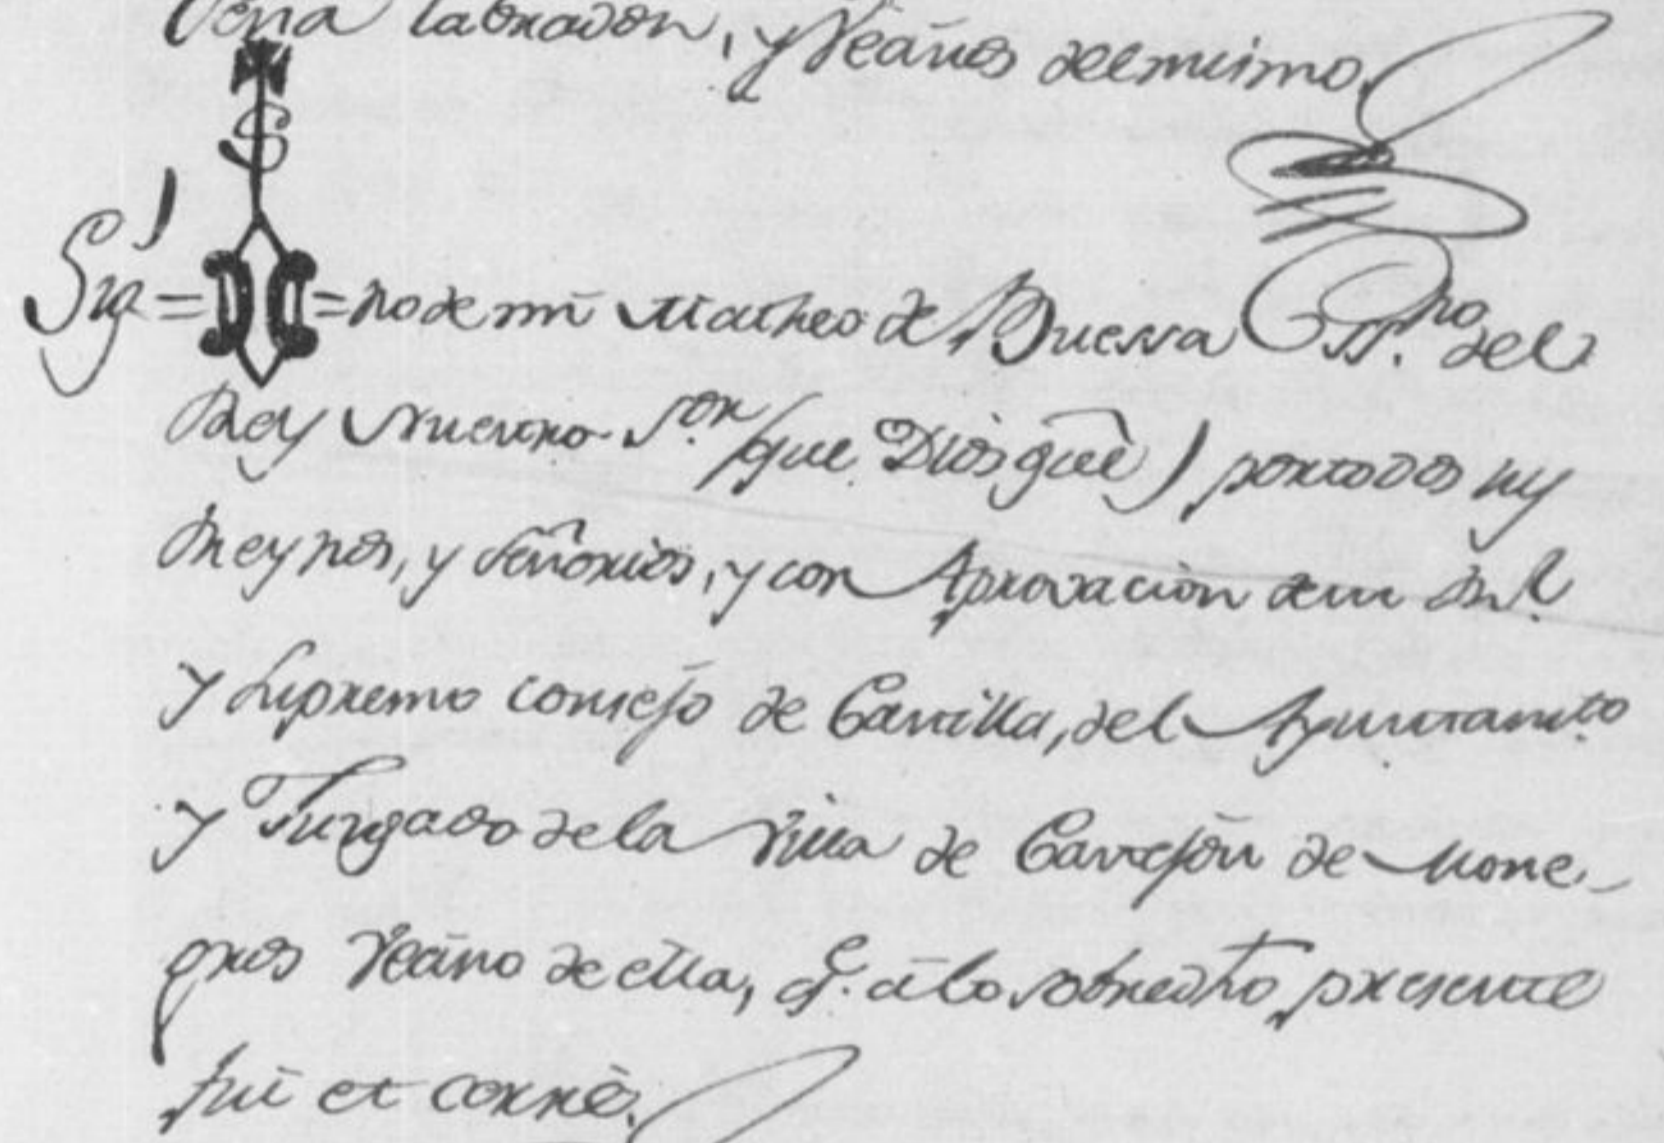 labrador, y Vecinos del mismo.
S
Sig = = no de mi Matheo de Buesa Ess.no del
Rey Nuestro S.or (que Dios gûe) por todos sus
Reynos, y Señorios, y con Aprovacion de su Rl.
y Supremo consejo de Castilla, del Ayuntam.to
y Juzgado de la Villa de Castejón de Mone-
gros Vecino de ella, q.e â lo sobredho presente
fuî et cerrè.